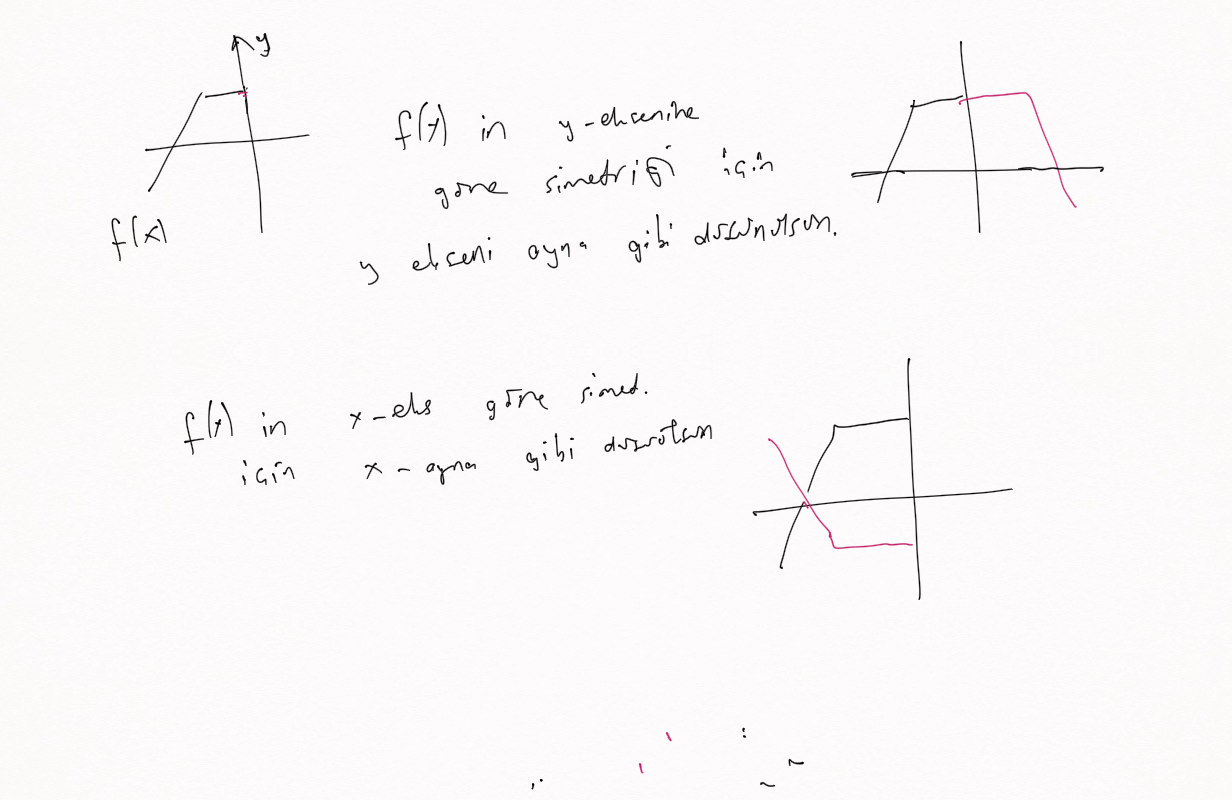 y
f(x)
f(x) in y-eksenine
göre simetriği için
y ekseni ayna gibi düşünülsün.
f(x) in x-eks göre simet.
için x-ayna gibi